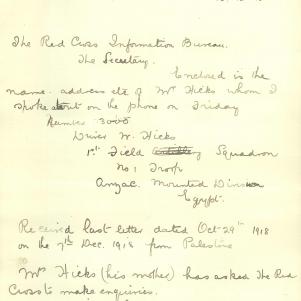 The Red Cross Information Bureau.
The Secretary.
Enclosed is the
name address etc of Mr Hicks whom I
spoke about on the phone on Friday
Number 3000
Driver W. Hicks
1st Field Squadron
No 1 Troop
Anzac Mounted Division
Egypt.
Received last letter dated Oct 29th 1918
on the 7th Dec. 1918 from Palestine
Mrs Hicks (his mother) has asked The Red
Cross to make enquiries.